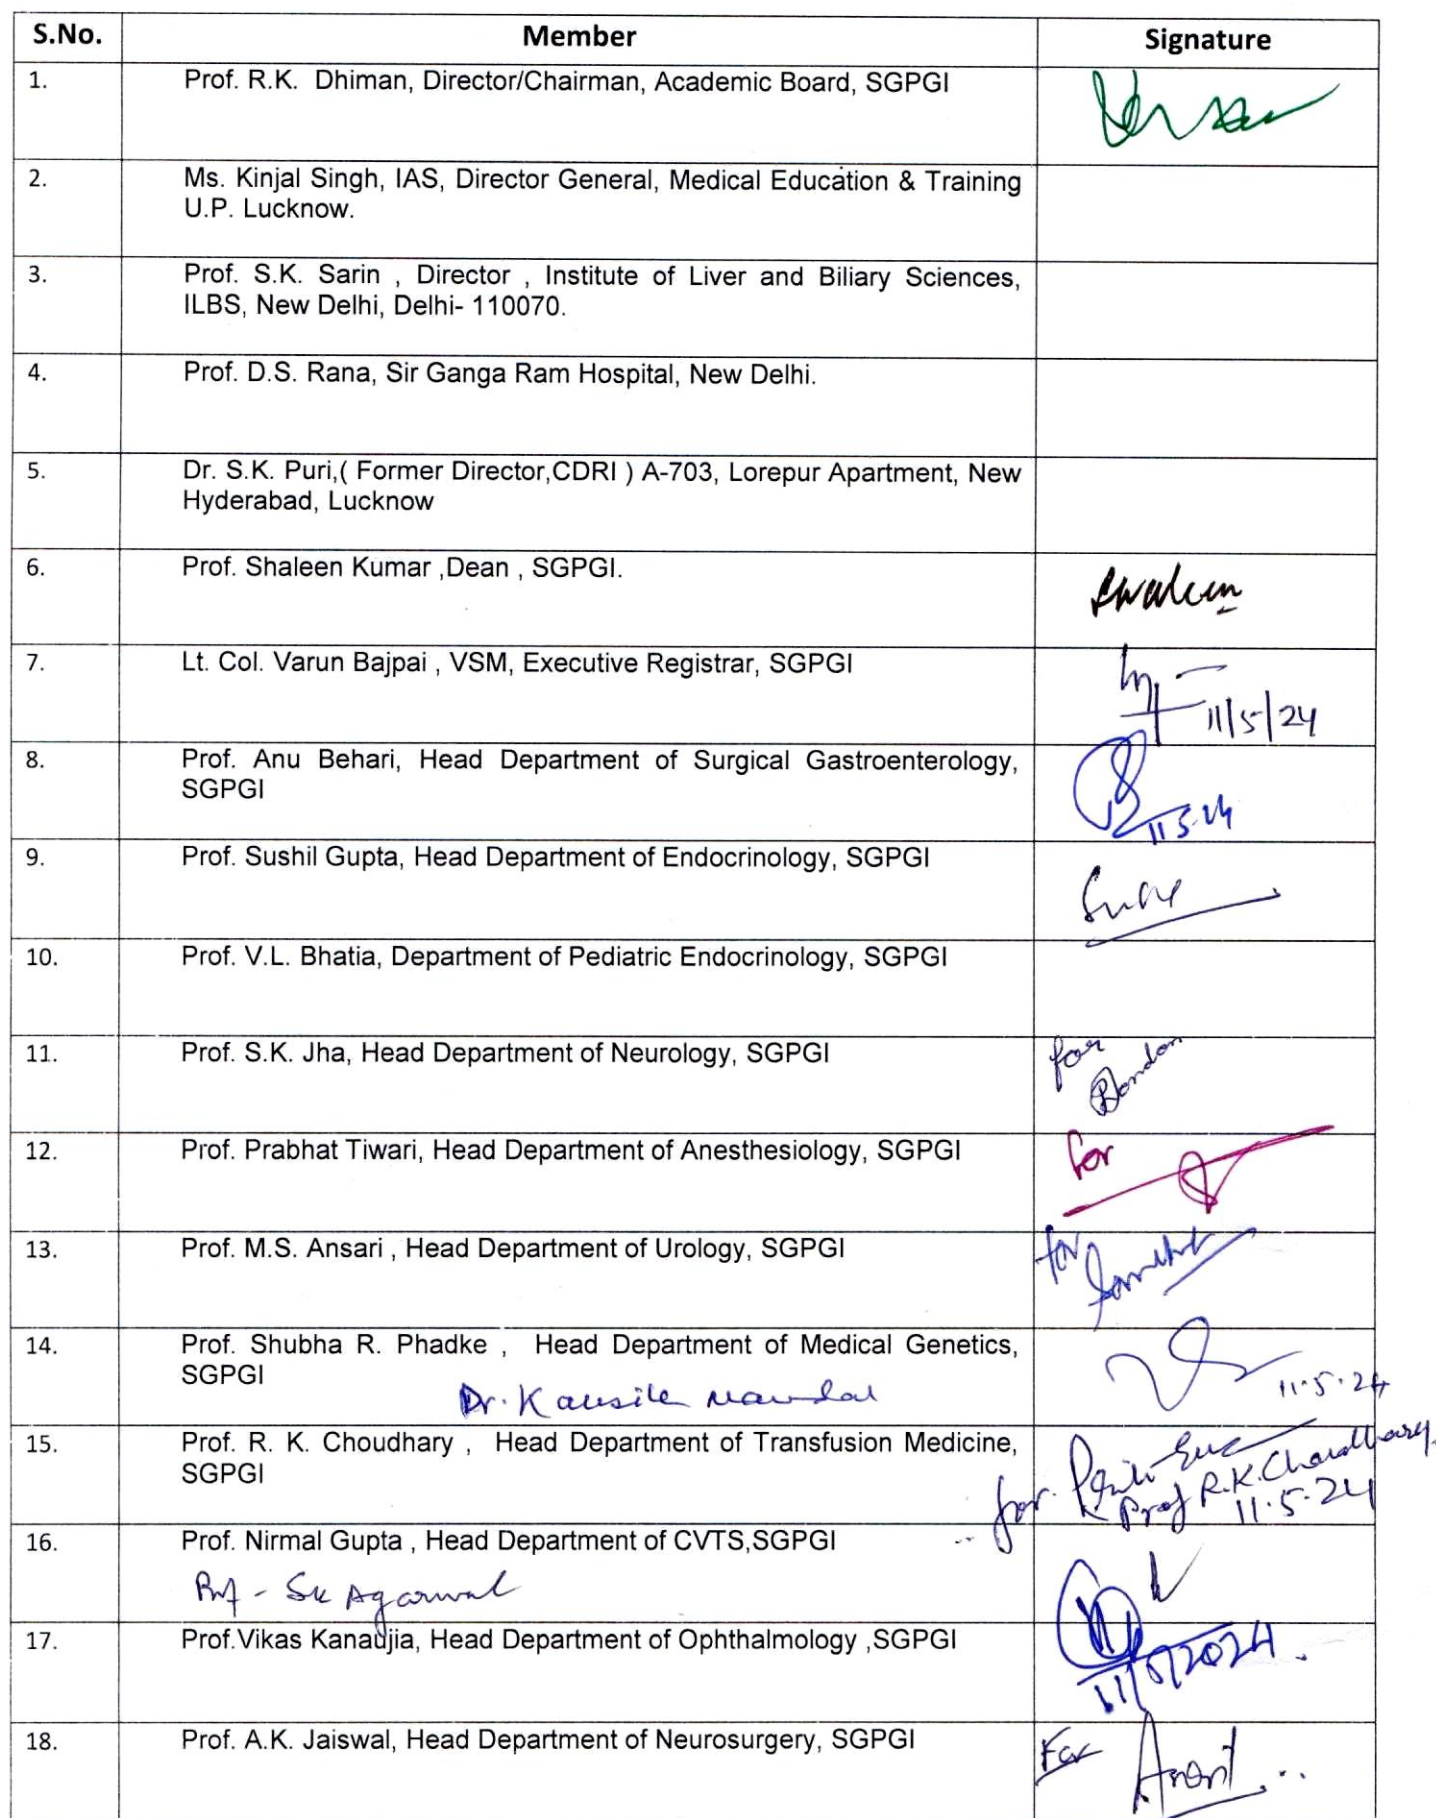 S.No. Member Signature
1. Prof. R.K. Dhiman, Director/Chairman, Academic Board, SGPGI
2. Ms. Kinjal Singh, IAS, Director General, Medical Education & Training
U.P. Lucknow.
3. Prof. S.K. Sarin , Director , Institute of Liver and Biliary Sciences,
ILBS, New Delhi, Delhi- 110070.
4. Prof. D.S. Rana, Sir Ganga Ram Hospital, New Delhi.
5. Dr. S.K. Puri,( Former Director,CDRI ) A-703, Lorepur Apartment, New
Hyderabad, Lucknow
6. Prof. Shaleen Kumar ,Dean , SGPGI.
7. Lt. Col. Varun Bajpai , VSM, Executive Registrar, SGPGI
11/5/24
8. Prof. Anu Behari, Head Department of Surgical Gastroenterology,
SGPGI
11.5.24
9. Prof. Sushil Gupta, Head Department of Endocrinology, SGPGI
10. Prof. V.L. Bhatia, Department of Pediatric Endocrinology, SGPGI
11. Prof. S.K. Jha, Head Department of Neurology, SGPGI for
12. Prof. Prabhat Tiwari, Head Department of Anesthesiology, SGPGI for
13. Prof. M.S. Ansari , Head Department of Urology, SGPGI for
14. Prof. Shubha R. Phadke , Head Department of Medical Genetics,
SGPGI
Dr. Kausik Mandal 11.5.24
15. Prof. R. K. Choudhary , Head Department of Transfusion Medicine,
SGPGI
for Prof R.K. Chaudhary
11.5.24
16. Prof. Nirmal Gupta , Head Department of CVTS,SGPGI
Prof - SK Agarwal
17. Prof.Vikas Kanaujia, Head Department of Ophthalmology ,SGPGI
11/5/2024.
18. Prof. A.K. Jaiswal, Head Department of Neurosurgery, SGPGI For